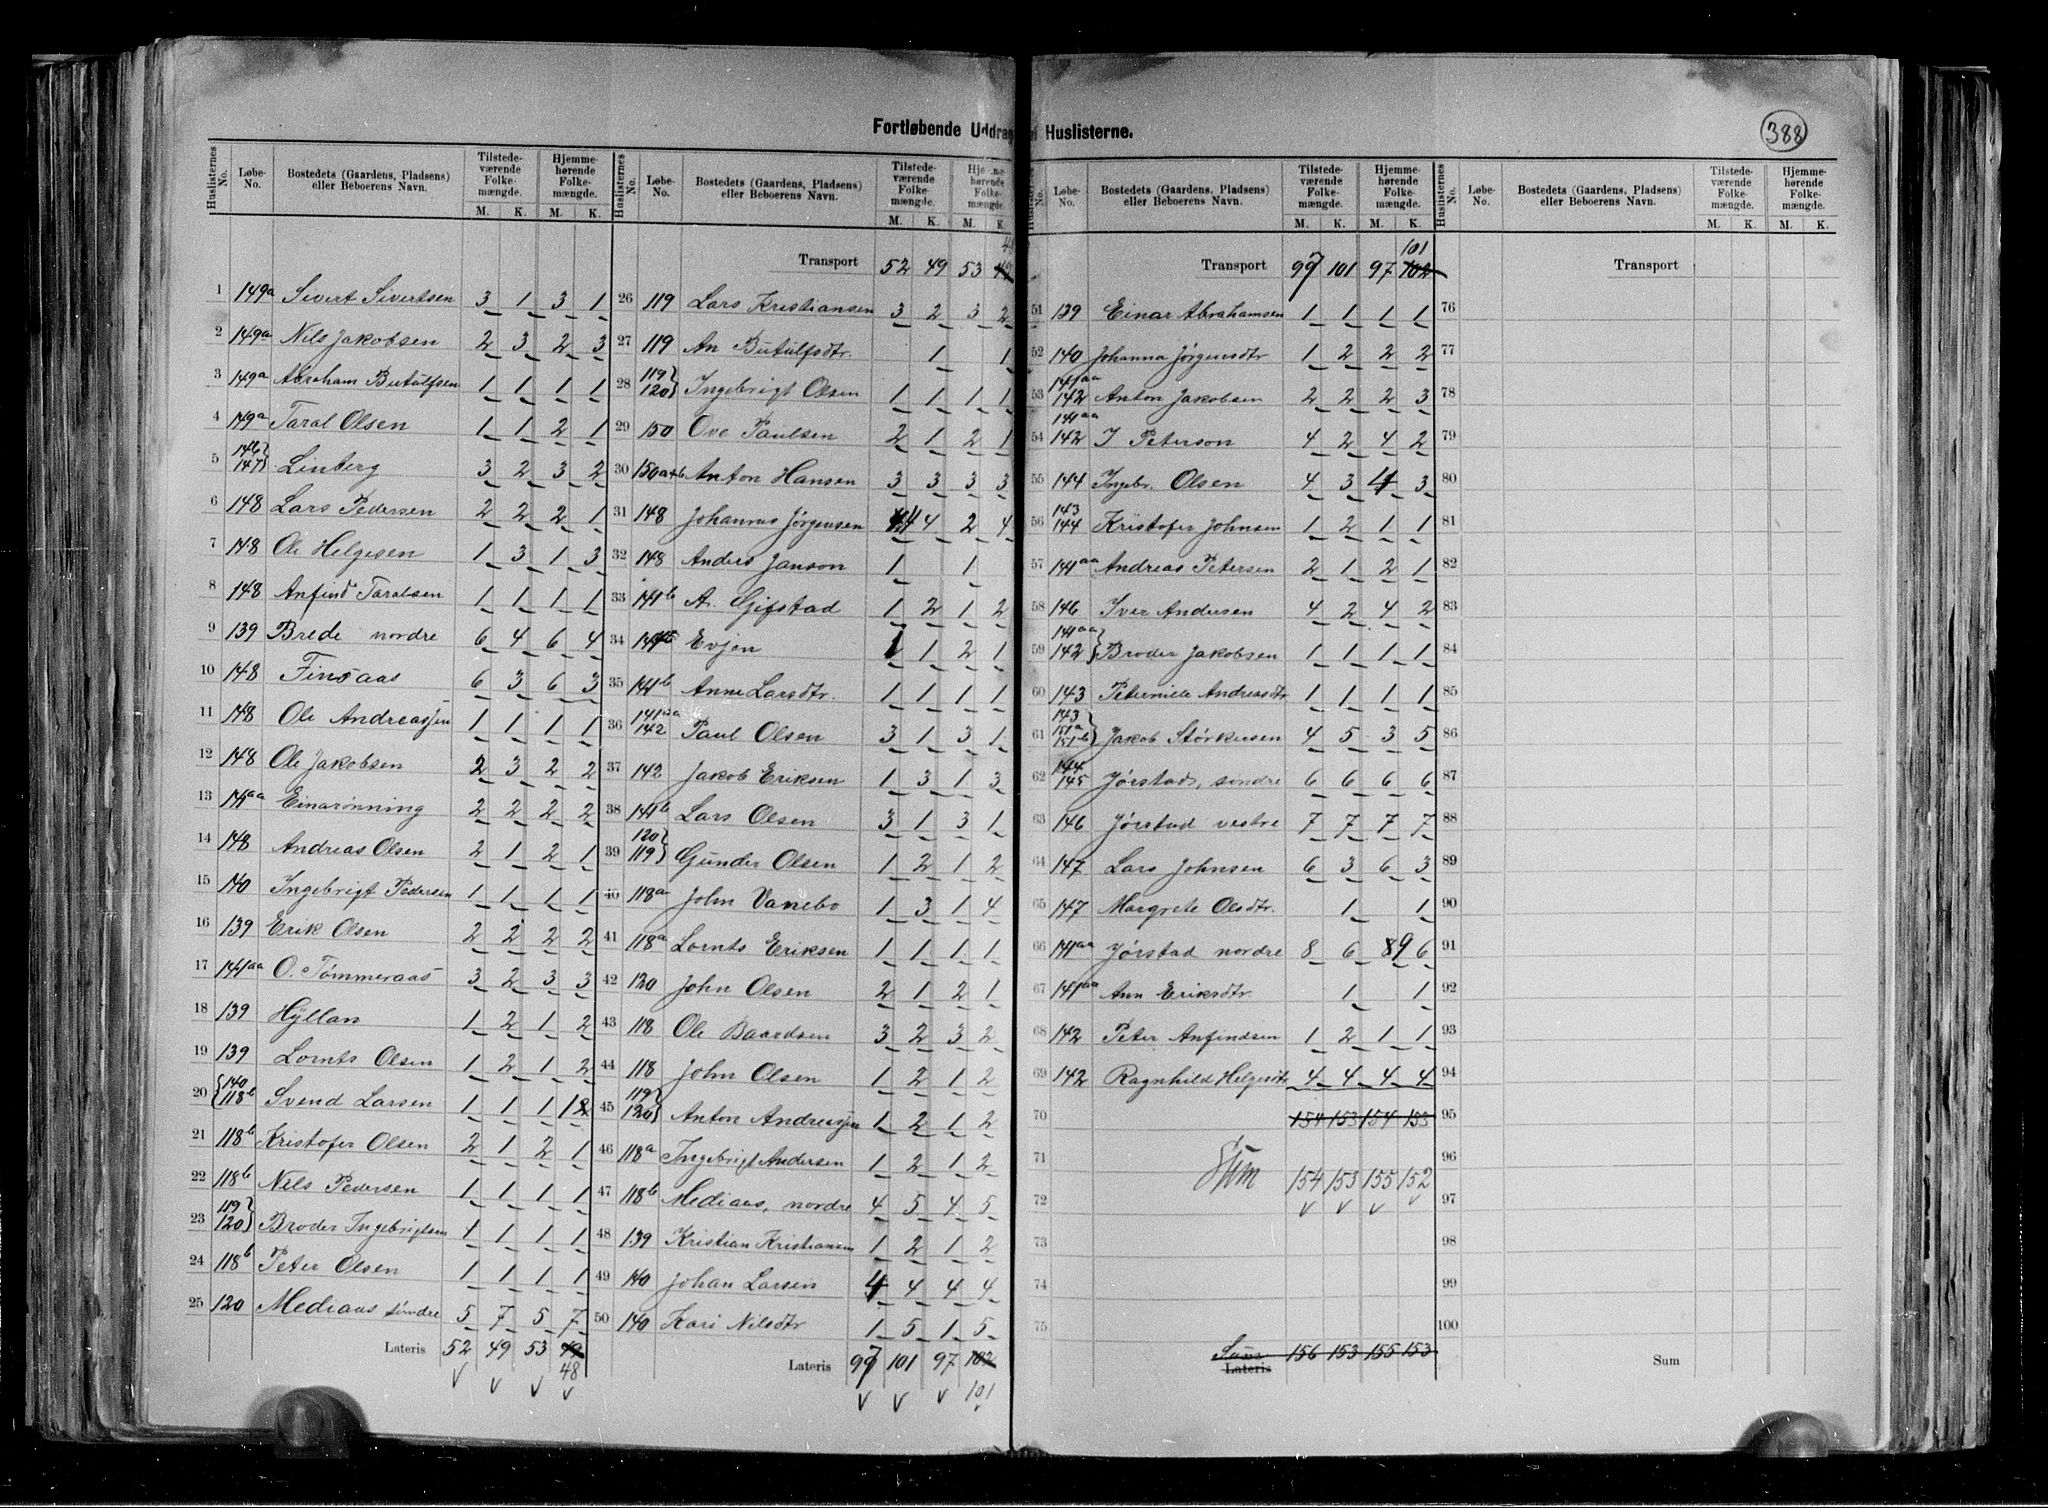 388
Fortløbende Uddrag af Huslisterne.
Huslisternes No. | Løbe-No. | Bostedets (Gaardens, Pladsens) eller Beboerens Navn. | Tilstedeværende Folkemængde. M. K. | Hjemmehørende Folkemængde. M. K.
1 149a Sivert Sivertsen 3 1 3 1
2 149a Nils Jakobsen 2 3 2 3
3 149a Abraham Butulfsen 1 1 1 1
4 149a Taral Olsen 1 1 2 1
5 146 147 Linberg 3 2 3 2
6 148 Lars Pedersen 2 2 2 1
7 148 Ole Helgesen 1 3 1 3
8 148 Anfind Taralsen 1 1 1 1
9 139 Brede nordre 6 4 6 4
10 148 Finsaas 6 3 6 3
11 148 Ole Andreassen 1 1 1 1
12 148 Ole Jakobsen 2 3 2 2
13 141aa Einarønning 2 2 2 2
14 148 Andreas Olsen 2 1 2 1
15 140 Ingebrigt Pedersen 1 1 1 1
16 139 Erik Olsen 2 2 2 2
17 141aa O. Tømmeraas 3 2 3 3
18 139 Hÿllan 1 2 1 2
19 139 Lornts Olsen 1 2 1 2
20 140 118b Svend Larsen 1 1 1 1
21 118b Kristofer Olsen 2 1 2 1
22 118b Nils Pedersen 1 1 1 1
23 119 120 Broder Ingebrigtsen 1 1 1 1
24 118b Peter Olsen 1 1 1 1
25 120 Mediaas søndre 5 7 5 7
Lateris 52 49 53 49
48
Huslisternes No. | Løbe-No. | Bostedets (Gaardens, Pladsens) eller Beboerens Navn. | Tilstedeværende Folkemængde. M. K. | Hjemmehørende Folkemængde. M. K.
48
Transport 52 49 53 49
26 119 Lars Kristiansen 3 2 3 2
27 119 An Butulfsdtr. 1 1
28 119 120 Ingebrigt Olsen 1 1 1 1
29 150 Ove Paulsen 2 1 2 1
30 150a+b Anton Hansen 3 3 3 3
31 148 Johannes Jørgensen 4 4 2 4
32 148 Anders Janson 1 1
33 141b A. Gifstad 1 2 1 2
34 141b Evjen 1 1 2 1
35 141b Anne Larsdtr. 1 1 1 1
36 141aa 142 Paul Olsen 3 1 3 1
37 142 Jakob Eriksen 1 3 1 3
38 141b Lars Olsen 3 1 3 1
39 120 119 Gunder Olsen 1 2 1 2
40 118a John Vanebo 1 3 1 4
41 118a Lornts Eriksen 1 1 1 1
42 120 John Olsen 2 1 2 1
43 118 Ole Baardsen 3 2 3 2
44 118 John Olsen 1 2 1 2
45 119 120 Anton Andreassen 1 2 1 2
46 118a Ingebrigt Andersen 1 2 1 2
47 118b Mediaas, nordre 4 5 4 5
48 139 Kristian Kristiansen 1 2 1 2
49 140 Johan Larsen 4 4 4 4
50 140 Kari Nilsdtr 1 5 1 5
Lateris 97 101 97 102
101
Huslisternes No. | Løbe-No. | Bostedets (Gaardens, Pladsens) eller Beboerens Navn. | Tilstedeværende Folkemængde. M. K. | Hjemmehørende Folkemængde. M. K.
101
Transport 97 101 97 102
51 139 Einar Abrahamsen 1 1 1 1
52 140 Johanna Jørgensdtr 1 2 2 2
53 141aa 142 Anton Jakobsen 2 2 2 3
54 141aa 142 I Peterson 4 2 4 2
55 144 Ingebr. Olsen 4 3 4 3
56 143 144 Kristofer Johnsen 1 2 1 1
57 141aa Andreas Petersen 2 1 2 1
58 146 Iver Andersen 4 2 4 2
59 141aa 142 Broder Jakobsen 1 1 1 1
60 143 Peternille Andreasdtr 1 1 1 1
61 143 151a 151b Jakob Størkersen 4 5 3 5
62 144 145 Jørstad, søndre 6 6 6 6
63 146 Jørstad vestre 7 7 7 7
64 147 Lars Johnsen 6 3 6 3
65 147 Margrete Olsdtr. 1 1
66 141aa Jørstad nordre 8 6 9 6
67 141aa Ann Eriksdtr. 1 1
68 142 Peter Anfindsen 1 2 1 1
69 142 Ragnhild Helgesdtr 4 4 4 4
70 154 153 154 153
71 Sum 154 153 155 152
72
73
74
75
Sum Lateris 156 153 155 153
Huslisternes No. | Løbe-No. | Bostedets (Gaardens, Pladsens) eller Beboerens Navn. | Tilstedeværende Folkemængde. M. K. | Hjemmehørende Folkemængde. M. K.
Transport
76
77
78
79
80
81
82
83
84
85
86
87
88
89
90
91
92
93
94
95
96
97
98
99
100
Sum